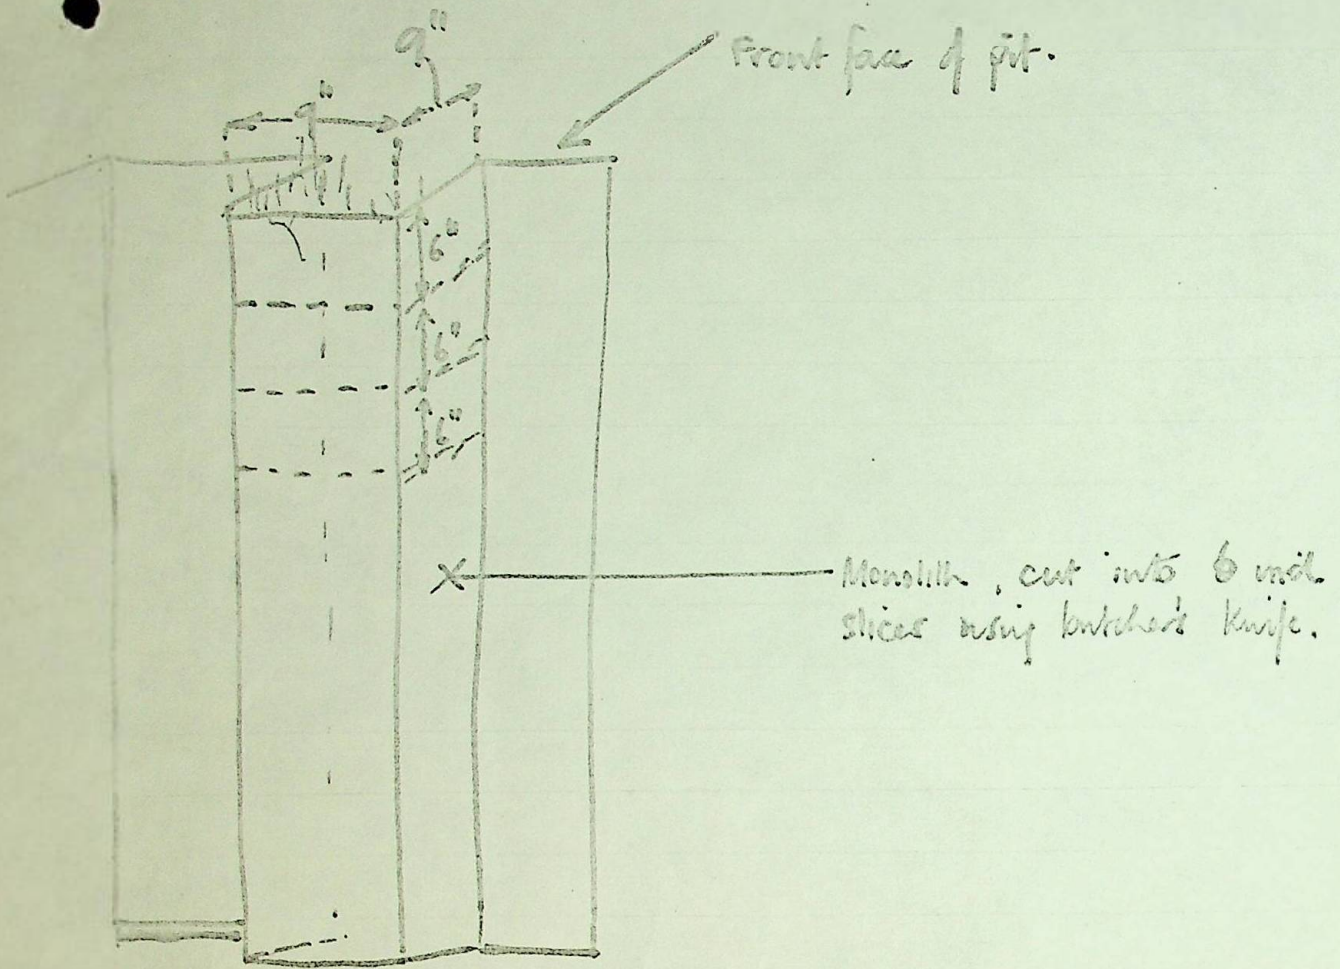 9"
9"
Front face of pit.
6"
6"
6"
Monolith, cut into 6 inch
slices using butchers knife.